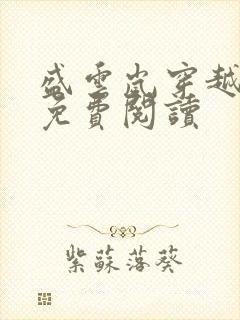 盛雲嵐穿越
免費閱讀
紫蘇落葵